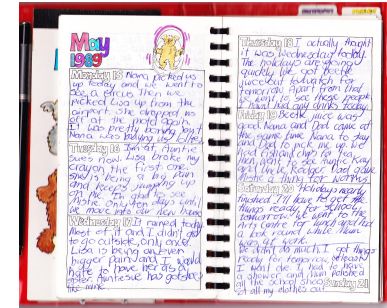 May
1989
Monday 15 Nana picked us
up today and we went to
see a circus. Then we
picked Lisa up from the
airport. She dropped us
off at the motel again.
It was pretty boring but
Nana was
Tuesday 16 I'm at Auntie
Sues now. Lisa broke my
crayon the first one.
She's being a big pain
and keeps jumping up
on me. I'm glad to see
Moshe. Only ten days until
we move into our new home
Wednesday 17 It rained today
most of it and I didn't get
to go outside, only once.
Lisa is being an even
bigger pain and I would
hate to have her as a
sister. Auntie Sue has got
the same
Thursday 18 I actually thought
it was Wednesday today.
The holidays are going
quickly. We got Beetle
juice out to watch for
tomorrow. Apart from that
we went to see those people
I haven't had any drinks today.
Friday 19 Beetle juice was
good. Nana and Dad came at
the same time. Nana to stay
and Dad to pick me up. We
had fish and chips for tea
then went to see Kay
and Uncle Roger. Dad gave
Moshe a drink for
Saturday 20 Holidays nearly
finished. I'll have to get the
things ready for school
tomorrow. We went to the
Arts Centre for lunch and had
a look round while Mum
was at work.
Sunday 21
We didn't do much. I got things
ready for tomorrow, at least
I want to. I had to have
a shower and Mum
all the school shoes